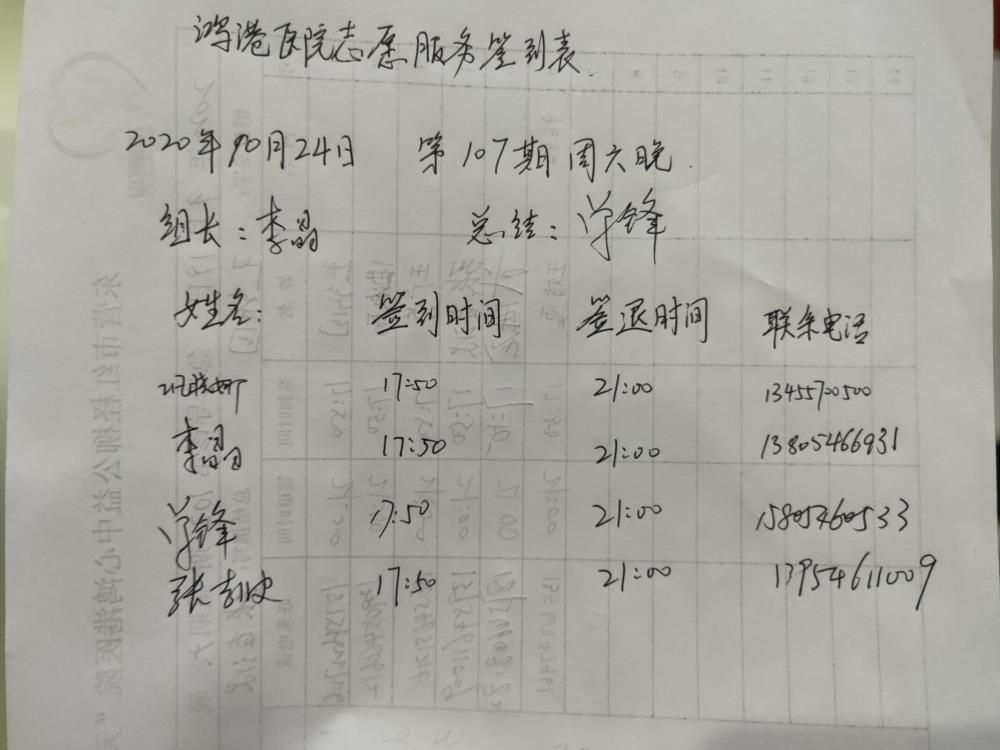 鸿港医院志愿服务签到表
2020年10月24日 第107期 周六晚
组长：李晶 总结：学锋
姓名： 签到时间 签退时间 联系电话
17:50 21:00 13455700500
李晶 17:50 21:00 13805466931
学锋 17:50 21:00 15805460533
张 17:50 21:00 13954611009